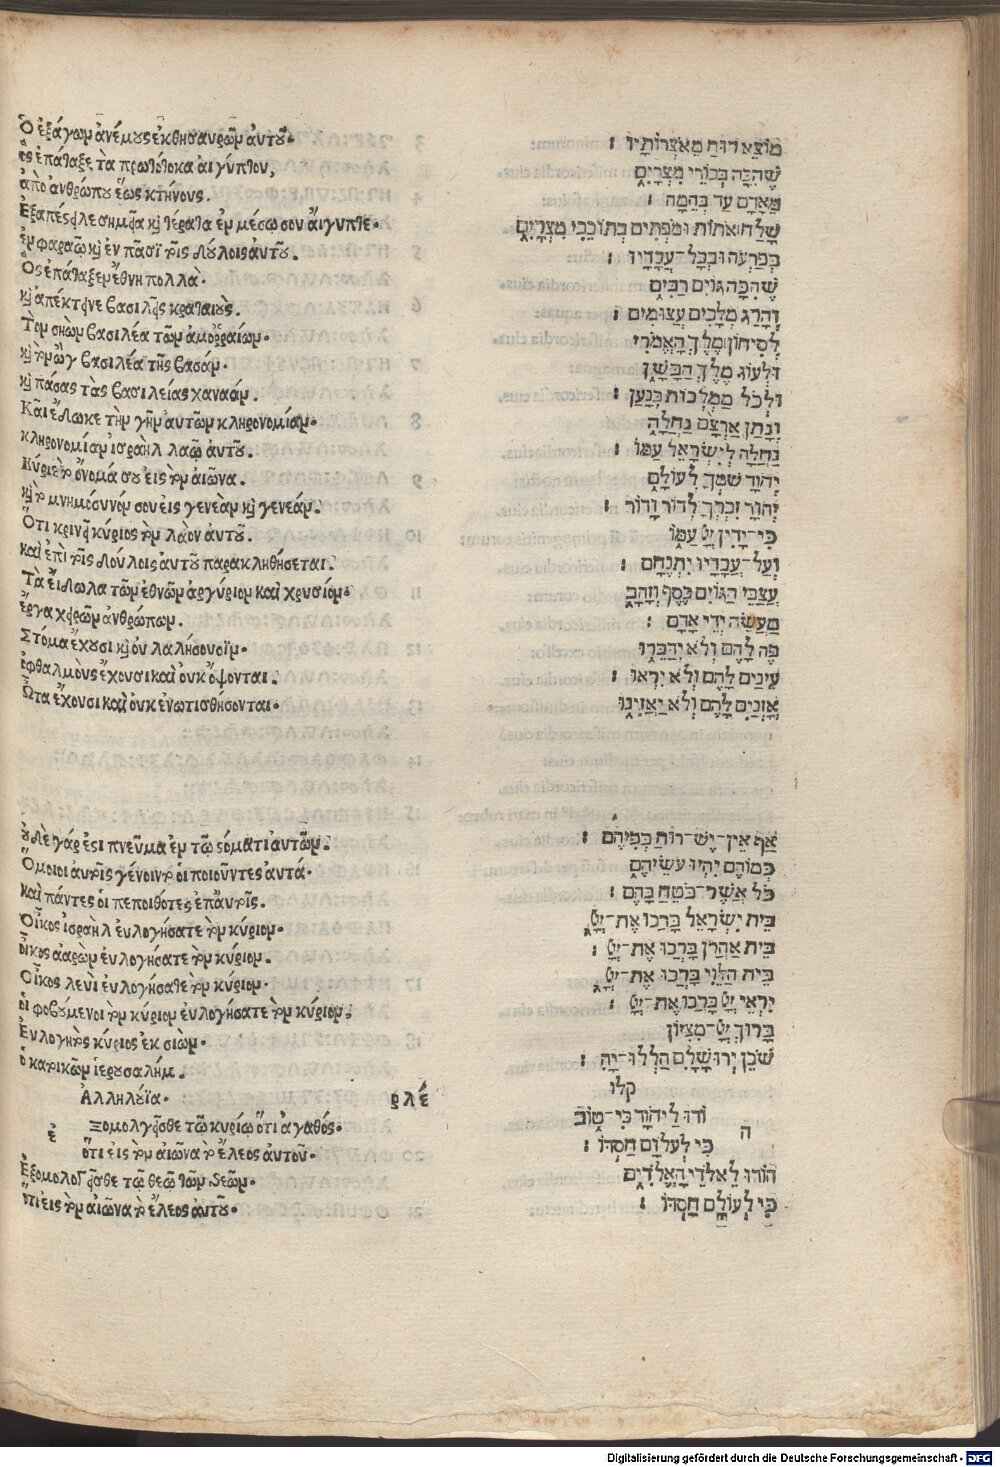 Ὁ ἐξάγωμ ἀνέμους ἐκ θησαυρῶμ ἀυτοῦ·
ὃς ἐπάταξε τὰ πρωτότοκα ἀιγύπτου,
ἀπὸ ἀνθρώπου ἕως κτήνους.
Ἐξαπέςειλε σημεῖα κὶ τέρατα ἐμ μέσω σου ἀίγυπτε·
ἐμ φαραῷ κὶ ἐν πᾶσϊ τοῖς δούλοις ἀυτοῦ.
Ὃς ἐπάταξεμ ἔθνη πολλὰ·
κὶ ἀπέκτεινε βασιλεῖς κραταιούς.
Τὸμ σηὼμ βασιλέα τῶμ ἀμορραίωμ·
κὶ τὸμ ὢγ βασιλέα τῆς βασάμ·
κὶ πάσας τὰς βασιλείας χαναάμ.
Καὶ ἔδωκε τὴμ γῆμ ἀυτῶμ κληρονομίαμ·
κληρονομίαμ ἰσραὴλ λαῷ ἀυτοῦ.
Κύριε τὸ ὄνομά σου εἰς τὸμ αἰῶνα.
κὶ τὸ μνημόσυνόμ σου εἰς γενεὰμ κὶ γενεάμ.
Ὅτι κρινεῖ κύριος τὸμ λαὸν ἀυτοῦ.
καὶ ἐπὶ τοῖς δούλοις ἀυτοῦ παρακληθήσεται.
Τὰ ἔιδωλα τῶμ ἐθνῶμ ἀργύριομ καὶ χρυσιόμ·
ἔργα χειρῶμ ἀνθρώπωμ.
Στόμα ἔχουσι κὶ ὀυ λαλήσουσϊμ·
ὀφθαλμοὺς ἔχουσι καὶ ὀυκ ὄψονται.
Ὦτα ἔχουσι καὶ ὀυκ ἐνωτισθήσονται·
ὀυδὲ γάρ ἐςι πνεῦμα ἐμ τῷ ςόματι ἀυτῶμ.
Ὅμοιοι ἀυτοῖς γένοιντο οἱ ποιοῦντες ἀυτά·
καὶ πάντες οἱ πεποιθότες ἐπ᾽ ἀυτοῖς.
Ὀῖκος ἰσραὴλ ἐυλογήσατε τὸμ κύριομ·
ὀῖκος ἀαρὼμ ἐυλογήσατε τὸμ κύριομ.
Ὀῖκος λευὶ ἐυλογήσατε τὸμ κύριομ·
ὁι φοβούμενοι τὸμ κύριομ ἐυλογήσατε τὸμ κύριομ.
Ἐυλογητὸς κύριος ἐκ σιὼμ·
ὁ κατοικῶμ ἱερουσαλήμ.
Ἀλληλούϊα· ρλέ
ἐ ξομολγεῖσθε τῷ κυρίῳ ὅτι ἀγαθός·
ὅτι εἰς τὸμ αἰῶνα τὸ ἔλεος ἀυτοῦ·
Ἐξομολογεῖσθε τῷ θεῷ τῶμ θεῶμ·
ὅτι εἰς τὸμ αἰῶνα τὸ ἔλεος ἀυτοῦ·
מוֹצֵא רוּחַ מֵאֹצְרוֹתָיו :
שֶׁהִכָּה בְּכוֹרֵי מִצְרָיִם
מֵאָדָם עַד בְּהֵמָה :
שָׁלַח אוֹתוֹת וּמֹפְתִים בְּתוֹכֵכִי מִצְרָיִם
בְּפַרְעֹה וּבְכָל־עֲבָדָיו :
שֶׁהִכָּה גּוֹיִם רַבִּים
וְהָרַג מְלָכִים עֲצוּמִים :
לְסִיחוֹן מֶלֶךְ הָאֱמֹרִי
וּלְעוֹג מֶלֶךְ הַבָּשָׁן
וּלְכֹל מַמְלְכוֹת כְּנָעַן :
וְנָתַן אַרְצָם נַחֲלָה
נַחֲלָה לְיִשְׂרָאֵל עַמּוֹ :
יְהוָה שִׁמְךָ לְעוֹלָם
יְהוָה זִכְרְךָ לְדוֹר וָדוֹר :
כִּי־יָדִין יְיָ עַמּוֹ
וְעַל־עֲבָדָיו יִתְנֶחָם :
עֲצַבֵּי הַגּוֹיִם כֶּסֶף וְזָהָב
מַעֲשֵׂה יְדֵי אָדָם :
פֶּה לָהֶם וְלֹא יְדַבֵּרוּ
עֵינַיִם לָהֶם וְלֹא יִרְאוּ :
אָזְנַיִם לָהֶם וְלֹא יַאֲזִינוּ
אַף אֵין־יֶשׁ־רוּחַ בְּפִיהֶם :
כְּמוֹהֶם יִהְיוּ עֹשֵׂיהֶם
כֹּל אֲשֶׁר־בֹּטֵחַ בָּהֶם :
בֵּית יִשְׂרָאֵל בָּרְכוּ אֶת־יְיָ
בֵּית אַהֲרֹן בָּרְכוּ אֶת־יְיָ :
בֵּית הַלֵּוִי בָּרְכוּ אֶת־יְיָ
יִרְאֵי יְיָ בָּרְכוּ אֶת־יְיָ :
בָּרוּךְ יְיָ־מִצִּיּוֹן
שֹׁכֵן יְרוּשָׁלָםִ הַלְלוּ־יָהּ :
קלו
ה וֹדוּ לַיהוָה כִּי־טוֹב
כִּי לְעוֹלָם חַסְדּוֹ :
הוֹדוּ לֵאלֹהֵי הָאֱלֹהִים
כִּי לְעוֹלָם חַסְדּוֹ :
Digitalisierung gefördert durch die Deutsche Forschungsgemeinschaft - DFG